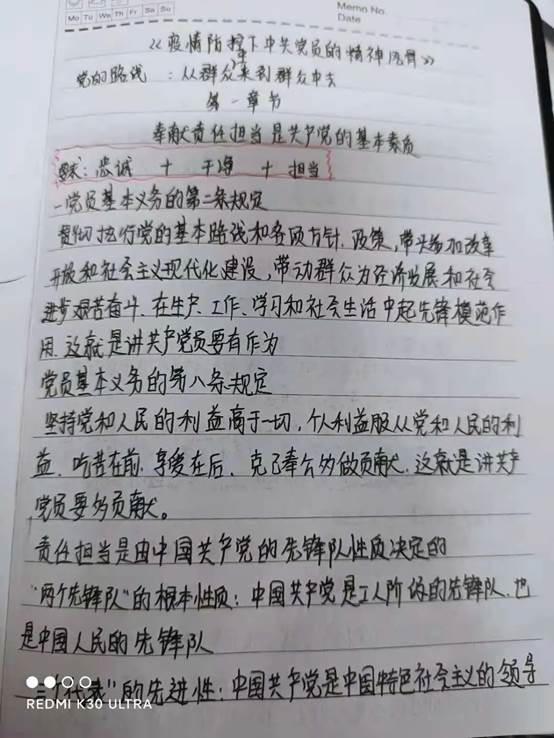 Mo Tu We Th Fr Sa Su
Memo No.
Date
《疫情防控下中共党员的精神风骨》
党的路线：从群众中来到群众中去
第一章节
奉献责任担当是共产党的基本素质
要求：忠诚 + 干净 + 担当
一党员基本义务的第二条规定
贯彻执行党的基本路线和各项方针、政策，带头参加改革
开放和社会主义现代化建设，带动群众为经济发展和社会
进步艰苦奋斗、在生产、工作、学习和社会生活中起先锋模范作
用、这就是讲共产党员要有作为
党员基本义务的第八条规定
坚持党和人民的利益高于一切，个人利益服从党和人民的利
益、吃苦在前，享受在后、克己奉公多做贡献、这就是讲共产
党员要多贡献。
责任担当是由中国共产党的先锋队性质决定的
"两个先锋队"的根本性质：中国共产党是工人阶级的先锋队、也
是中国人民的先锋队
三个代表"的先进性：中国共产党是中国特色社会主义的领导
REDMI K30 ULTRA